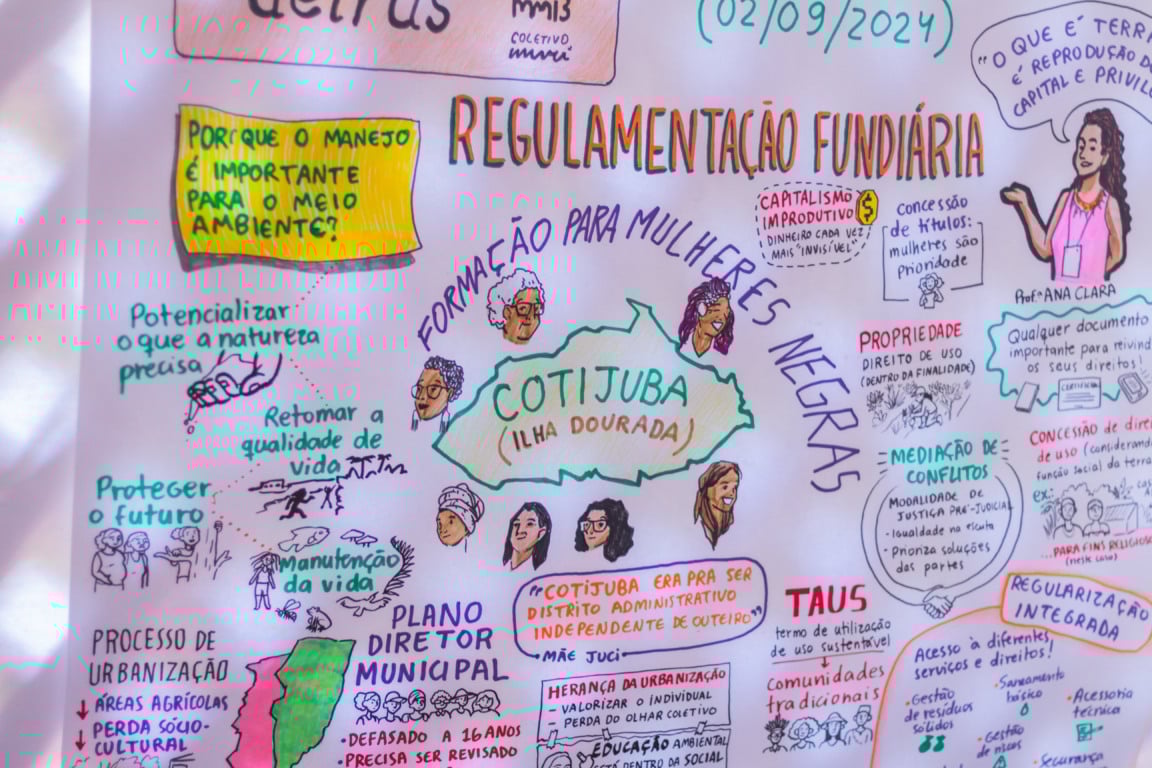 MMIB
COLETIVO
(02/09/2024)
"O QUE É TERRA
É REPRODUÇÃO DO
CAPITAL E PRIVILÉ
POR QUE O MANEJO
É IMPORTANTE
PARA O MEIO
AMBIENTE?
REGULAMENTAÇÃO FUNDIÁRIA
FORMAÇÃO PARA MULHERES NEGRAS
CAPITALISMO
IMPRODUTIVO
$
DINHEIRO CADA VEZ
MAIS "INVISÍVEL"
Concessão
de títulos:
mulheres são
prioridade
Prof.ª ANA CLARA
Potencializar
o que a natureza
precisa
Retomar a
qualidade de
vida
Proteger
o futuro
Manutenção
da vida
COTIJUBA
(ILHA DOURADA)
PROPRIEDADE
DIREITO DE USO
(DENTRO DA FINALIDADE)
Qualquer documento
importante para reivind
os seus direitos!
MEDIAÇÃO DE
CONFLITOS
MODALIDADE DE
JUSTIÇA PRÉ-JUDICIAL
- Igualdade na escuta
- Prioriza soluções
das partes
CONCESSÃO de direi
de uso (considerand
função social da terra
ex:
...PARA FINS RELIGIOSO
(neste caso)
"COTIJUBA ERA PRA SER
DISTRITO ADMINISTRATIVO
INDEPENDENTE DE OUTEIRO"
MÃE JUCI
TAUS
termo de utilização
de uso sustentável
Comunidades
tradicionais
REGULARIZAÇÃO
INTEGRADA
Acesso à diferentes
serviços e direitos!
• Gestão
de resíduos
sólidos
• Saneamento
básico
• Acessoria
técnica
• Gestão
de riscos
• Segurança
PROCESSO DE
URBANIZAÇÃO
↓ ÁREAS AGRÍCOLAS
↓ PERDA SÓCIO-
↓ CULTURAL
PLANO
DIRETOR
MUNICIPAL
• DEFASADO A 16 ANOS
• PRECISA SER REVISADO
HERANÇA DA URBANIZAÇÃO
- VALORIZAR O INDIVIDUAL
- PERDA DO OLHAR COLETIVO
EDUCAÇÃO AMBIENTAL
ESTÁ DENTRO DA SOCIAL